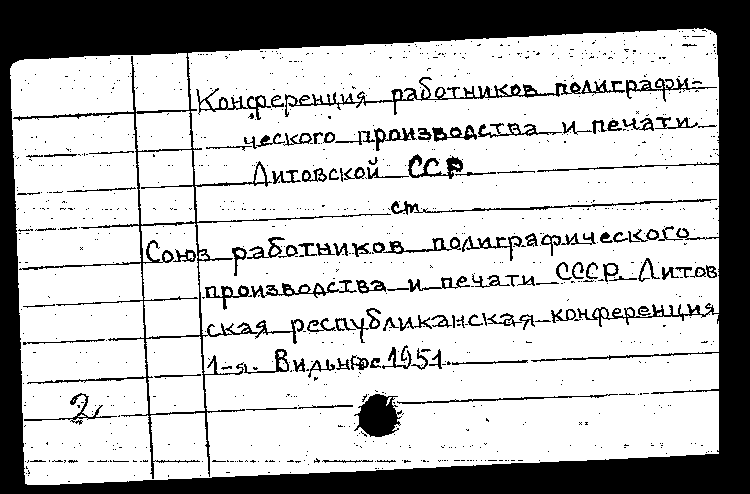 Конференция работников полиграфи-
ческого производства и печати
Литовской ССР.
см.
Союз работников полиграфического
производства и печати СССР. Литов
ская республиканская конференция,
1-я. Вильнюс. 1951.
2